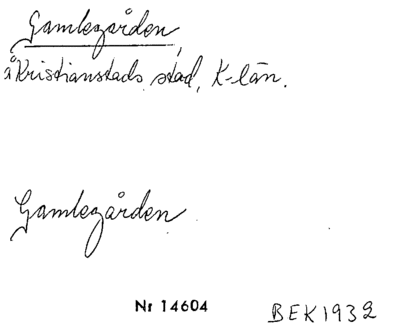 Gamlegården,
å Kristianstads stad, K-län.
Gamlegården
Nr 14604
BEK1932